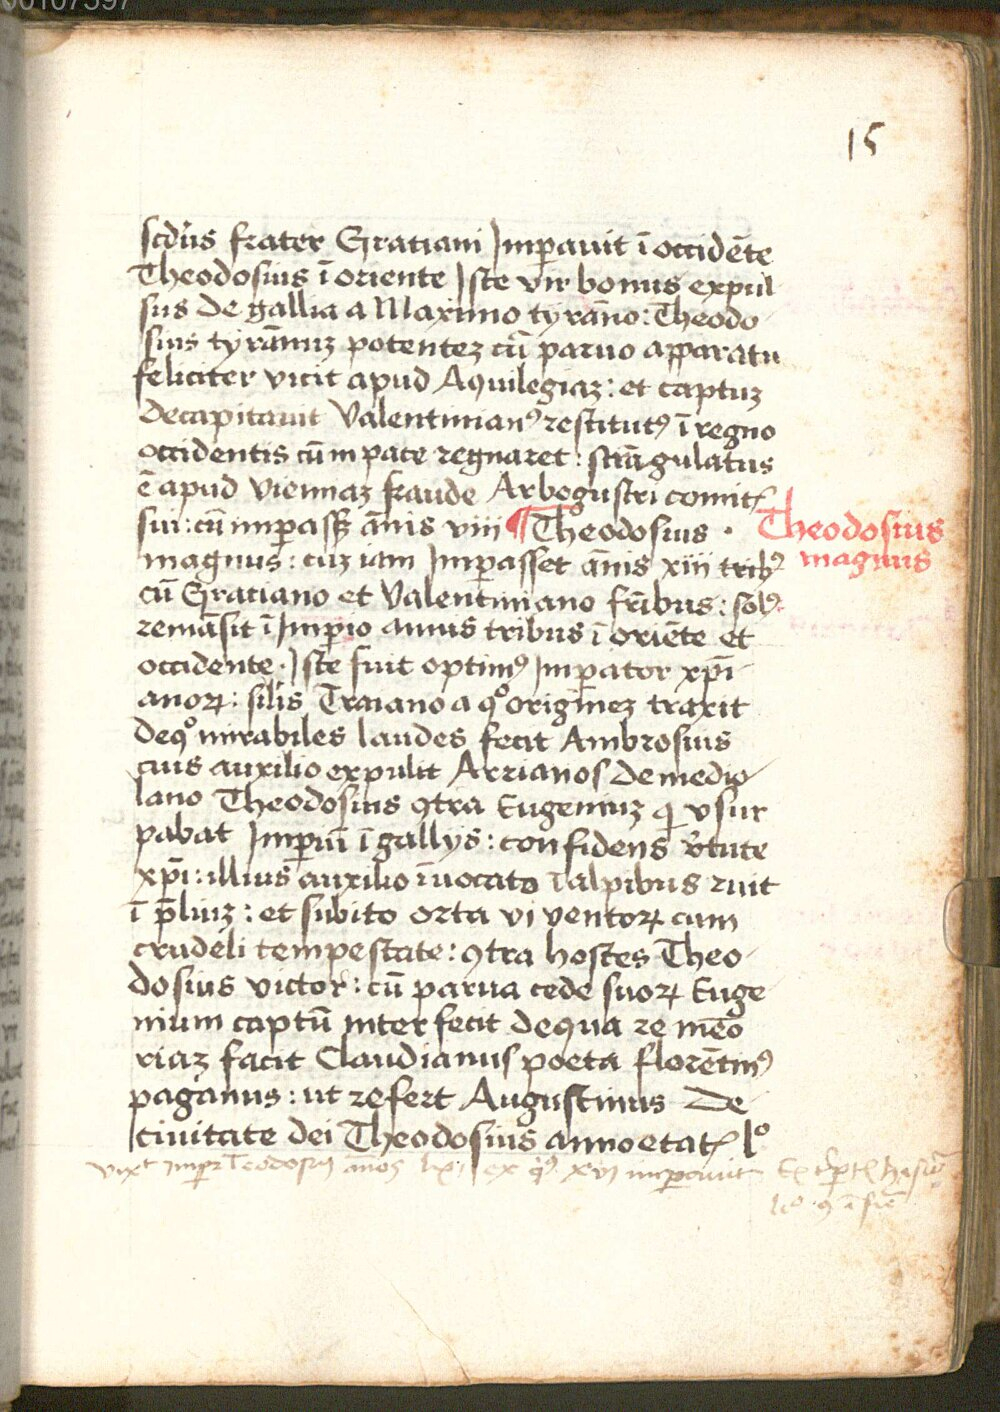 15
scd̄us frater Gratiani Imꝑauit ī occidēte
Theodosius ī oriente Iste vir bonus expul
sus de gallia a Maximo tyrāno: Theodo
sius tyrānuz potentez cū paruo apparatu
feliciter vicit apud Aquilegiaz: et captuz
decapitauit Valentinianꝰ restitutꝰ ī regno
occidentis cūm pace regnaret: strāgulatus
ē apud Viennaz fraude Arbogustri comitꝭ
sui: cū imꝑassꝫ ānis viii ¶ Theodosius ·
Theodosius
magnus
magnus: cuz iam Imꝑasset ānis xiii tribꝰ
cū Gratiano et Valentiniano fr̄ibus: solꝰ
remāsit ī Imꝑio annis tribus ī oriēte et
occidente· Iste fuit optimꝰ Imꝑator xp̄i
anoꝝ: sil̄is Traiano a qͦ originez traxit
deqͦ mirabiles laudes fecit Ambrosius
cuius auxilio expulit Arrianos de medio
lano Theodosius ꝯtra Eugeniuz qi vsur
pabat Imꝑiū ī gallys: confidens v̓tute
xp̄i: illius auxilio īuocato ī alpibus ruit
ī p̄liuz: et subito orta vi ventoꝝ cum
crudeli tempestate: ꝯtra hostes Theo
dosius victor: cū parua cede suoꝝ Euge
nium captū interfecit dequa re mēo
riaz facit Claudianus poeta florētinꝰ
paganus: ut refert Augustinus De
ciuitate dei Theodosius anno etatꝭ lͦ
vixt Imꝑr Teodosiꝰ ānos lx ex qͥbꝰ xvi imꝑauit